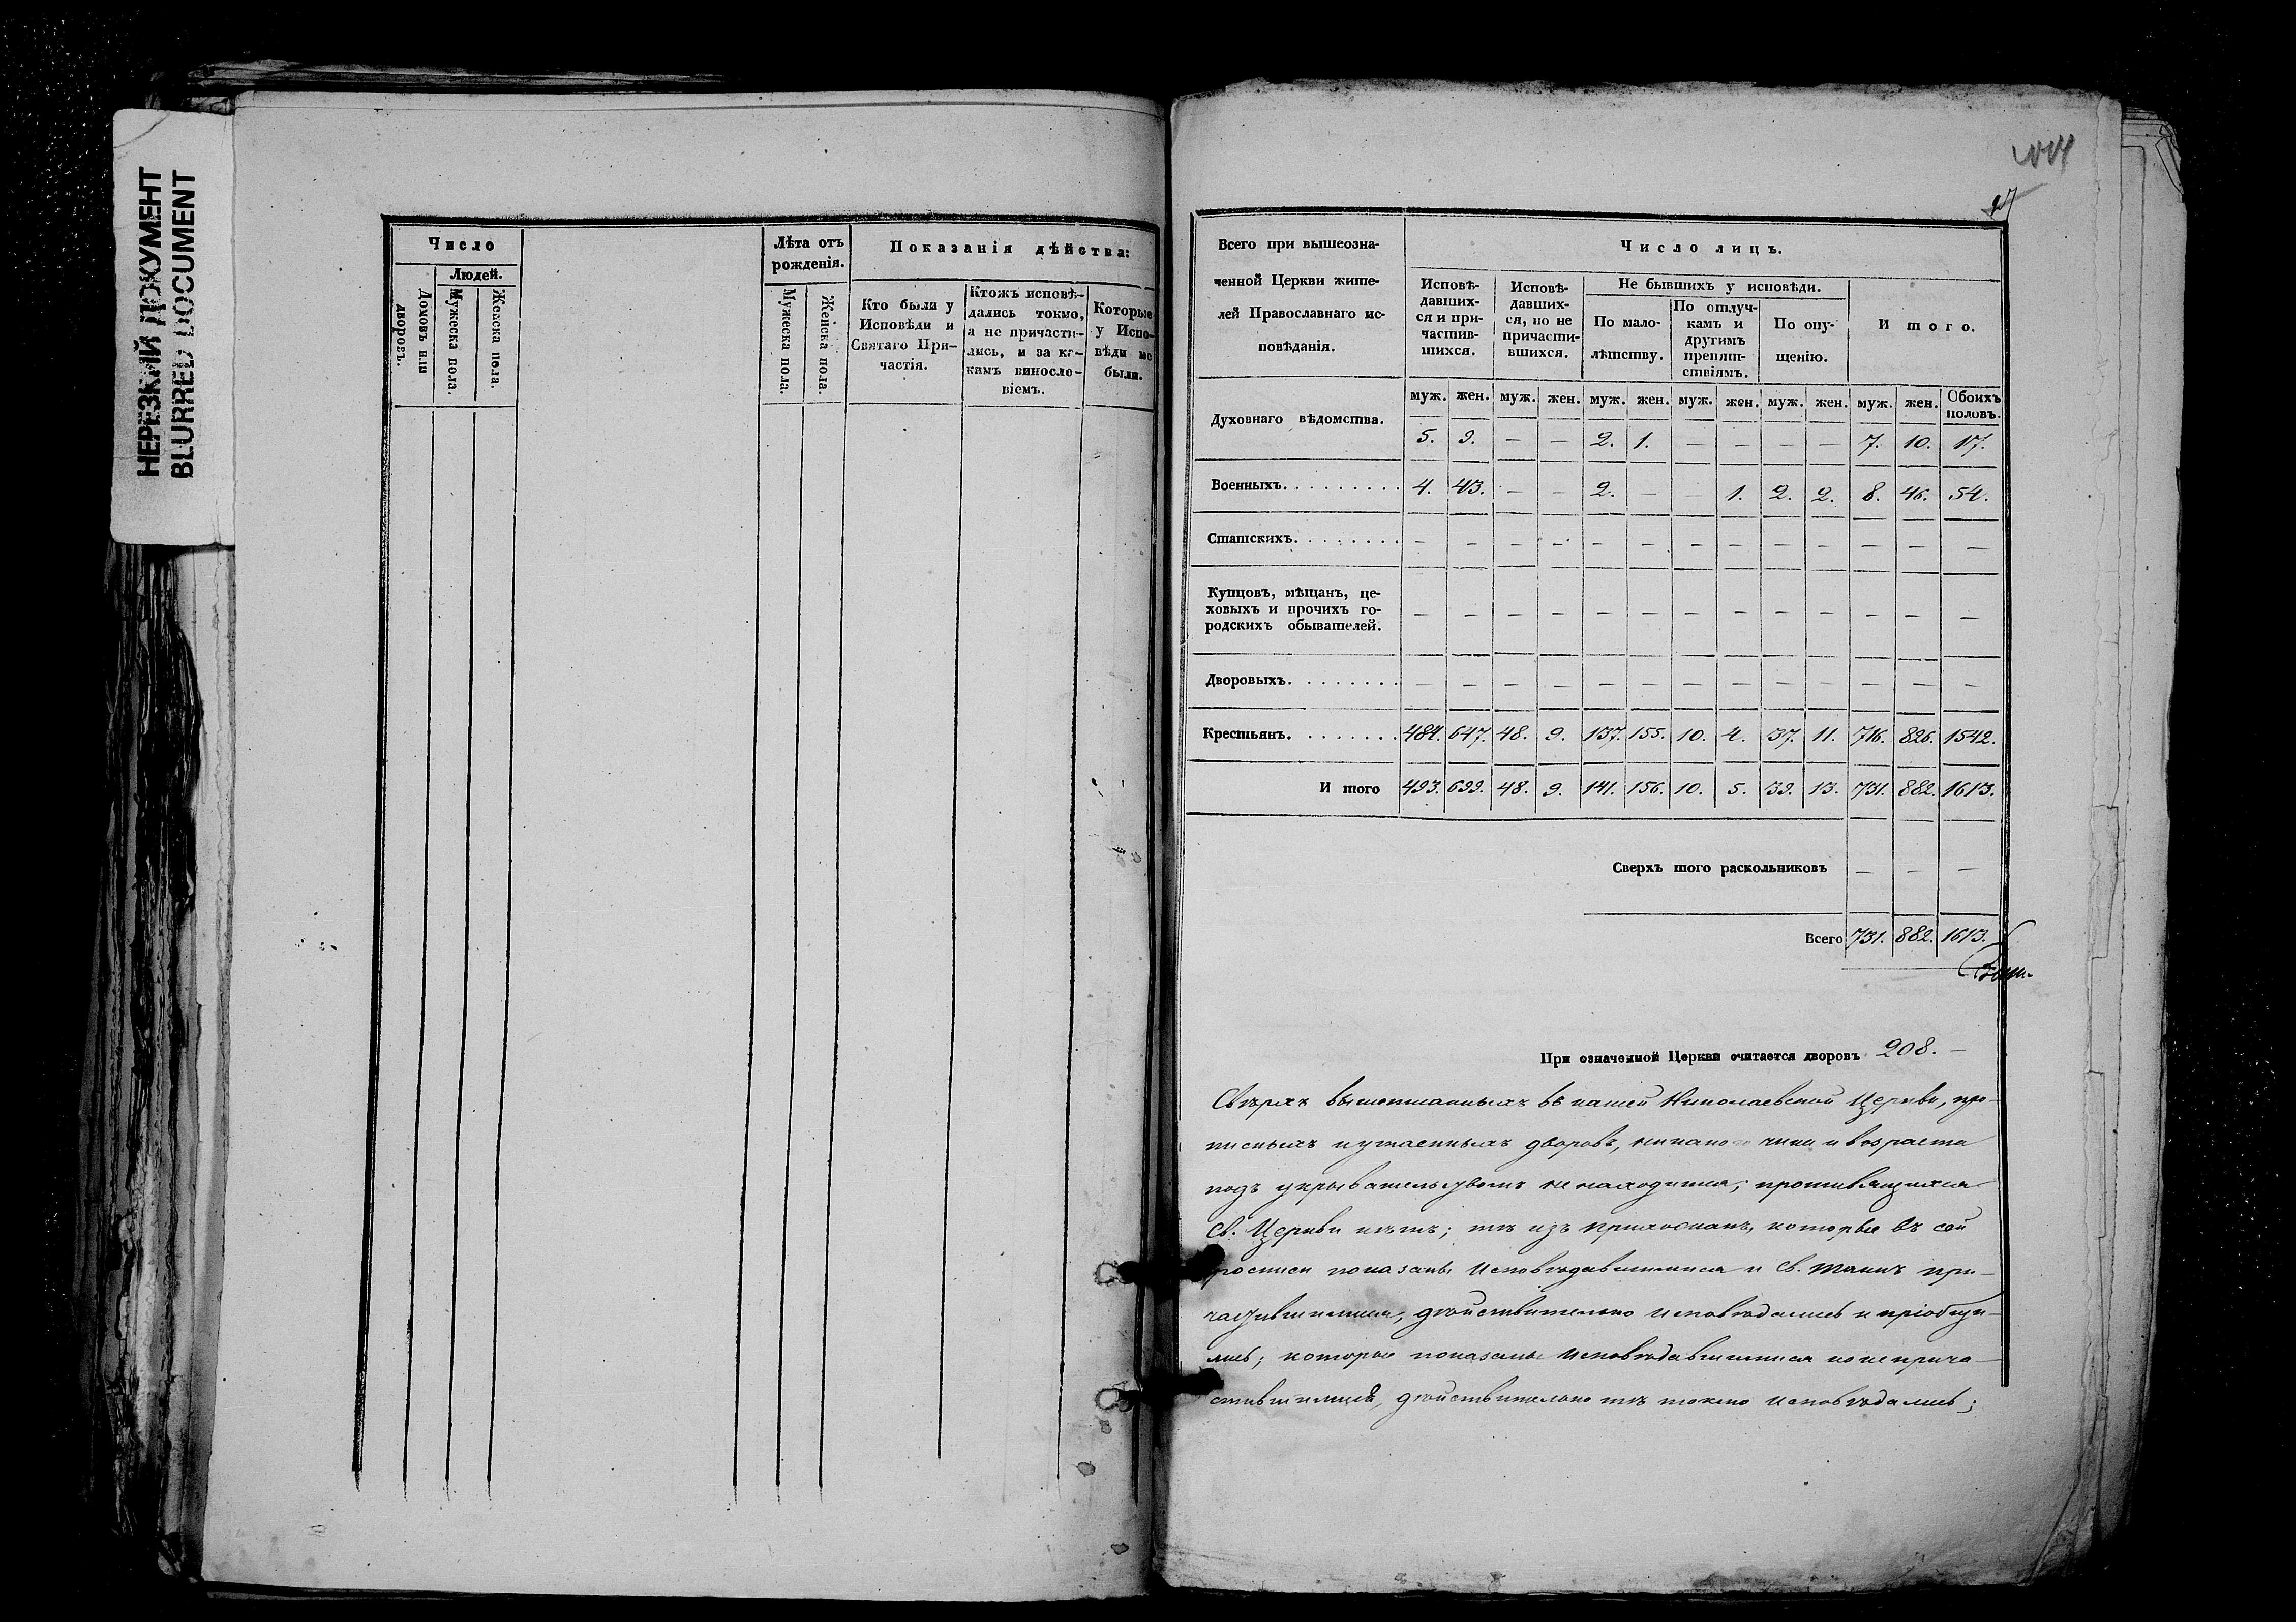 НЕРЕЗКИЙ ДОКУМЕНТ
BLURRED DOCUMENT
Число
Людей.
Домовъ или дворовъ.
Мужеска пола.
Женска пола.
Лѣта отъ рожденія.
Мужеска пола.
Женска пола.
Показанія дѣйства:
Кто были у
Исповѣди и
Святаго При-
частія.
Ктожъ исповѣ-
дались токмо,
а не причасти-
лись, и за ка-
кимъ винословіемъ.
Которые
у Испо-
вѣди не
были.
Всего при вышеозна-
ченной Церкви жите-
лей Православнаго ис-
повѣданія.
Число лицъ.
Исповѣ-
давших-
ся и при-
частив-
шихся.
Исповѣ-
давших-
ся, но не
причасти-
вшихся.
Не бывшихъ у исповѣди.
По мало-
лѣтству.
По отлуч-
камъ и
другимъ
препят-
ствіямъ.
По опу-
щенію.
И того.
муж. жен. муж. жен. муж. жен. муж. жен. муж. жен. муж. жен. Обоихъ половъ.
Духовнаго вѣдомства. 5. 9. — — 2. 1. — — — — 7. 10. 17.
Военныхъ. 4. 43. — — 2. — — 1. 2. 2. 8. 46. 54.
Статскихъ. — — — — — — — — — — — — —
Купцовъ, мѣщанъ, це-
ховыхъ и прочихъ го-
родскихъ обывателей. — — — — — — — — — — — — —
Дворовыхъ. — — — — — — — — — — — — —
Крестьянъ. 484. 647. 48. 9. 137. 155. 10. 4. 37. 11. 716. 826. 1542.
И того 493. 699. 48. 9. 141. 156. 10. 5. 39. 13. 731. 882. 1613.
Сверхъ того раскольниковъ — — —
Всего 731. 882. 1613.
При означенной Церкви считается дворовъ 208. —
Свѣрхъ вышеписанныхъ въ нашей Николаевской Церкви, про-
писныхъ и утаенныхъ дворовъ, чина и возраста
подъ укрывательствомъ не находится; противящихся
Св. Церкви нѣтъ; тѣ изъ прихожанъ, которые въ сей
росписи показаны Исповѣдавшимися и Св. Таинъ при-
частившимися, дѣйствительно исповѣдались и пріобщи-
лись; которые показаны Исповѣдавшимися но не прича-
стившимися, дѣйствительно тѣ токмо исповѣдались;